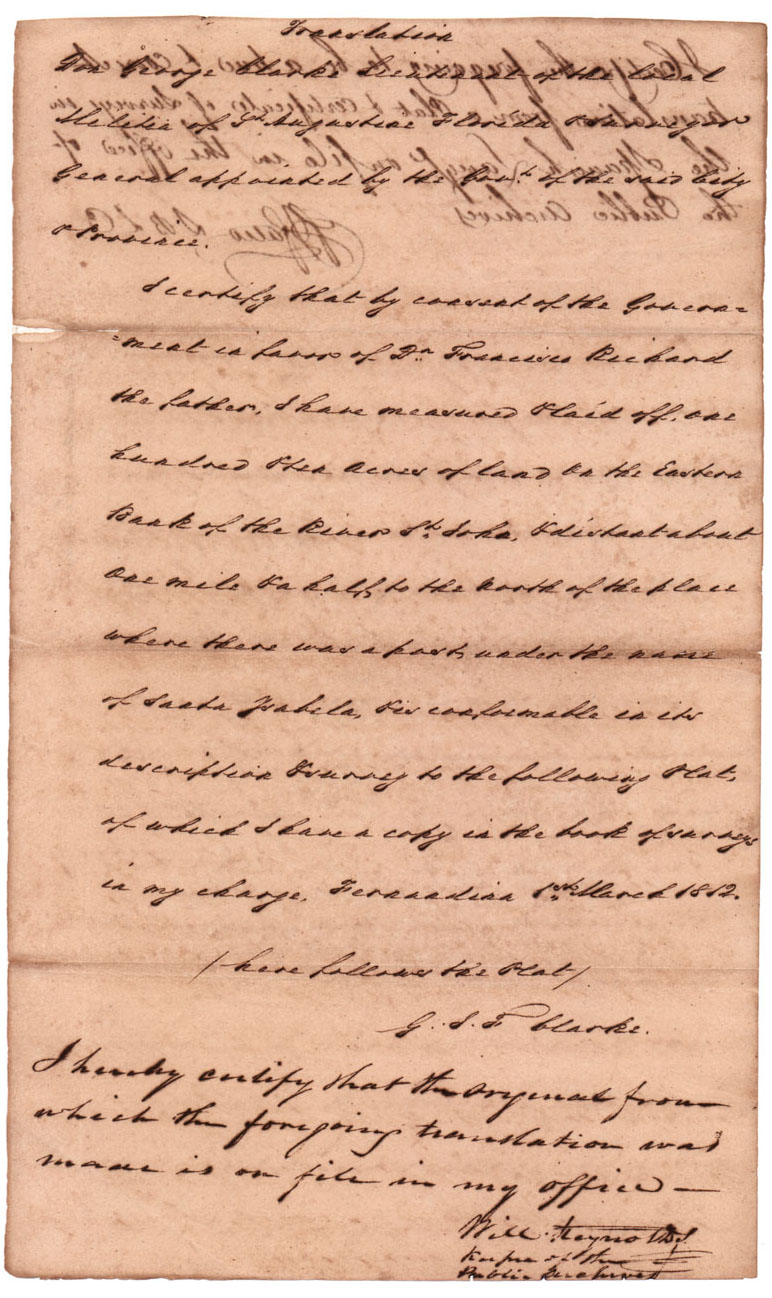 Translation
Don George Clarke Lieutenant of the local
Militia of St. Augustine Florida & Surveyor
General appointed by the Govt. of the said City
& Province.
I certify that by consent of the Govern=
=ment in favor of Dn. Francisco Richard
the father, I have measured & laid off, one
hundred & ten Acres of land on the Eastern
Bank of the River St. John, & distant about
one mile & a half, to the North of the place
where there was a post, under the name
of Santa Ysabela, & is conformable in its
description & survey to the following Plat,
of which I have a copy in the book of surveys
in my charge, Fernandina 1st March 1812.
/ here follows the Plat /
G. I. F. Clarke.
I hereby certify that the original from
which the foregoing translation was
made is on file in my office —
Will. Reynolds
Keeper of the
Public Archives